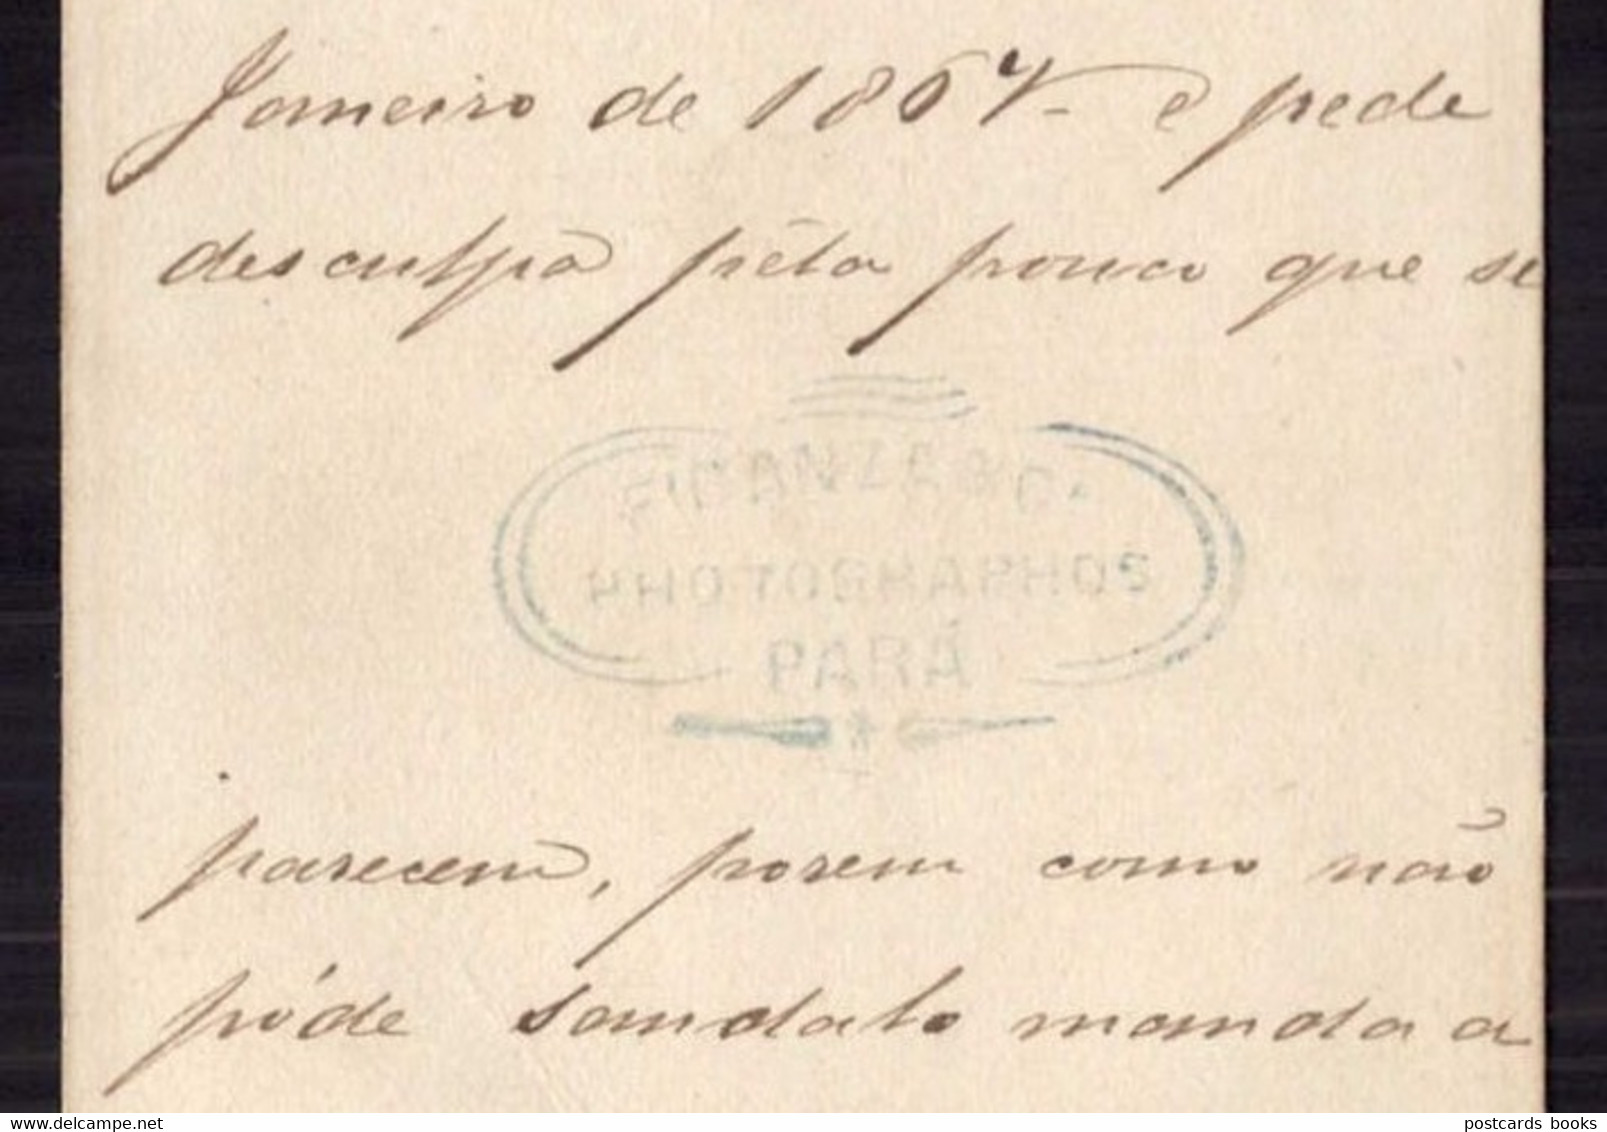 Janeiro de 1867 - e pede
desculpa pela pouco que se
FIDANZA & Cª
PHOTOGRAPHOS
PARÁ
parecem, porem como não
póde sandalo manda a
postcards books